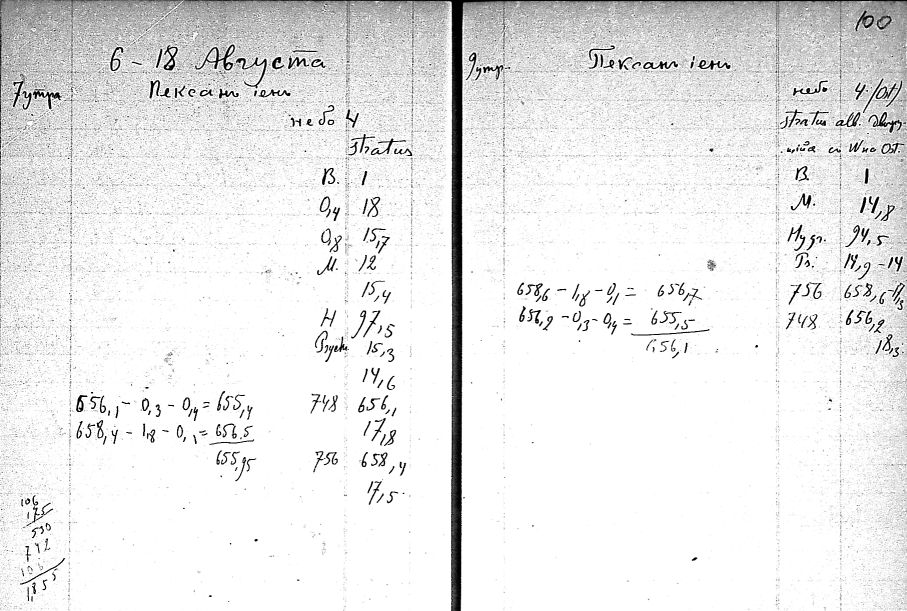 6 - 18 Августа
7 утра
Пексанъ іенъ
небо 4
stratus
В. 1
0,4 18
0,8 15,7
М. 12
15,4
Н 97,5
15,3
14,6
656,1 - 0,3 - 0,4 = 655,4 748 656,1
17,8
658,4 - 1,8 - 0,1 = 656,5
655,95 756 658,4
17,5
106
175
530
742
106
1,855
100
9 утр. Пексанъ іенъ
небо 4 (Ost)
stratus alb.
W на Ost.
В. 1
М. 14,8
Hygr. 94,5
Ps. 14,9 - 14
658,6 - 1,8 - 0,1 = 656,7 756 658,6
656,2 - 0,3 - 0,4 = 655,5 748 656,2
656,1 18,3